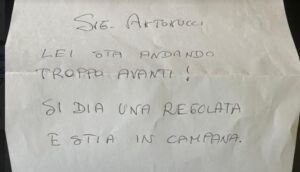 SIG. ANTONUCCI
LEI STA ANDANDO
TROPPO AVANTI!
SI DIA UNA REGOLATA
E STIA IN CAMPANA.